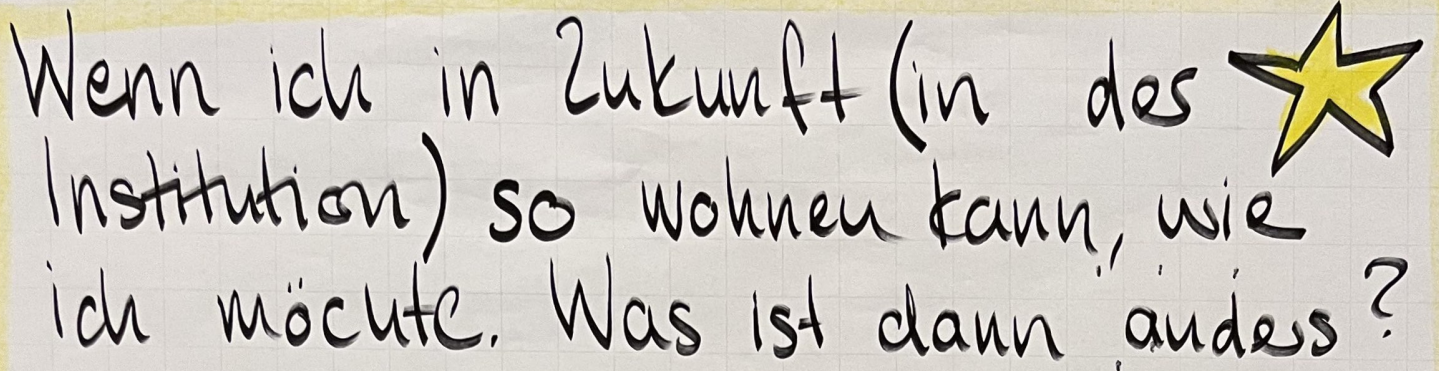 Wenn ich in Zukunft (in der
Institution) so wohnen kann, wie
ich möchte. Was ist dann anders?